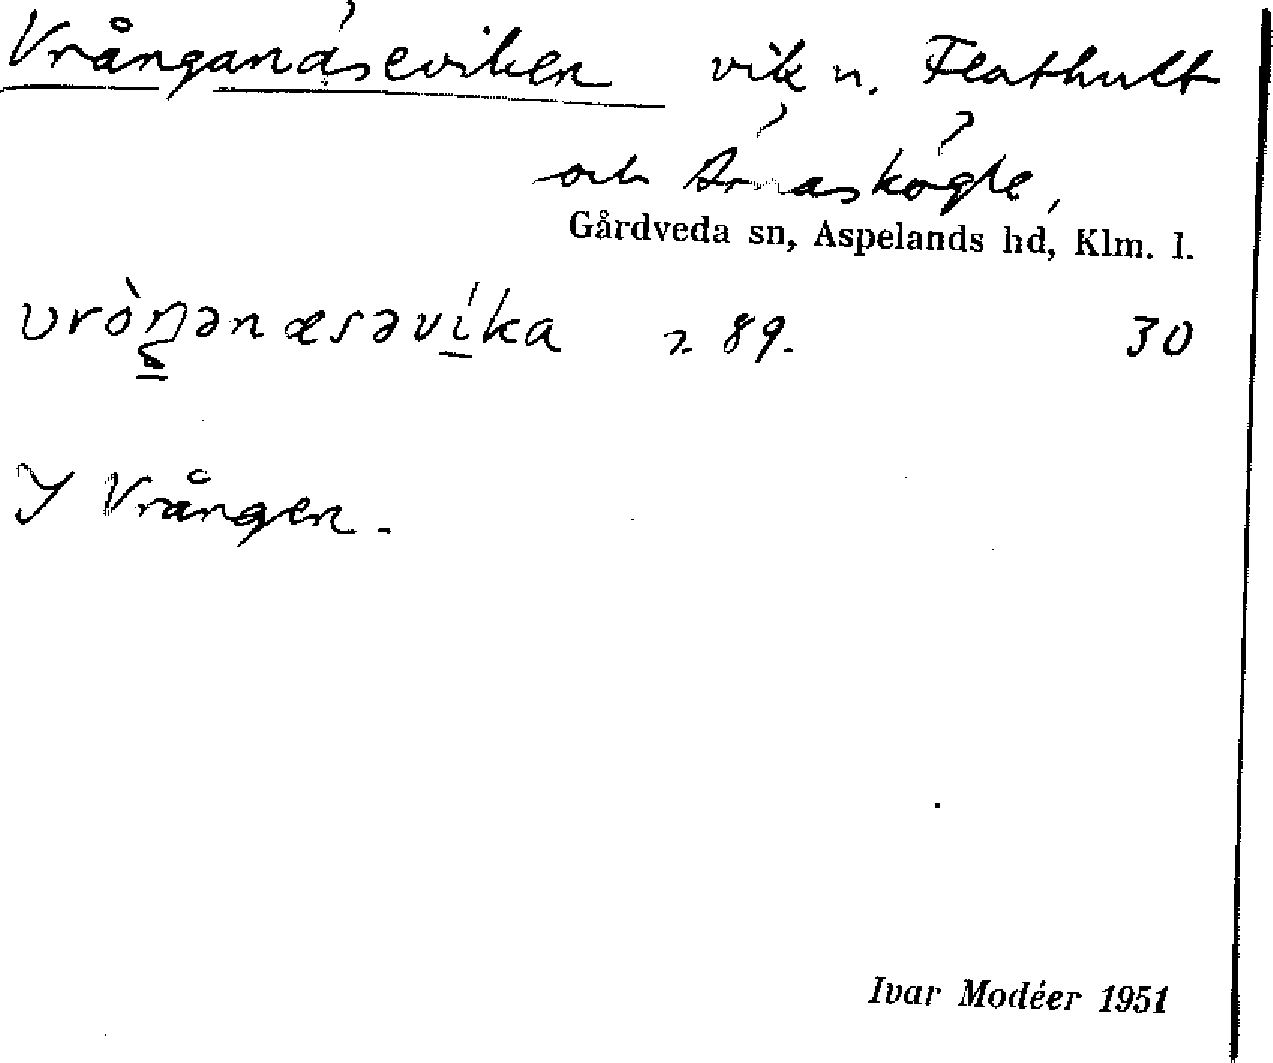 Vrånganäseviken vik n. Flathult
och Årnaskögle,
Gårdveda sn, Aspelands hd, Klm. l.
vròŋənæsəvíka 2. 89. 30
I Vrången.
Ivar Modéer 1951